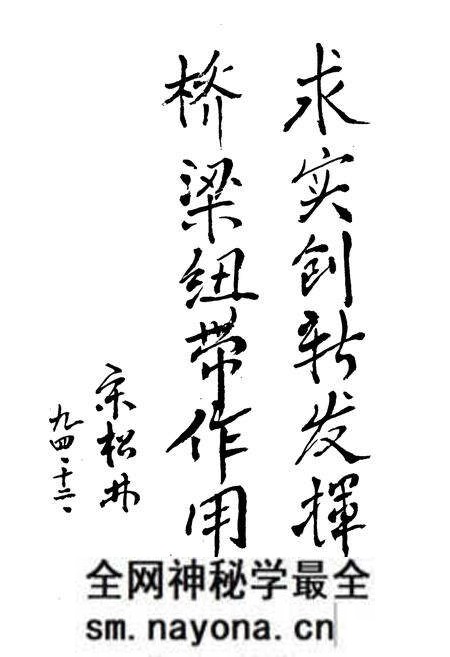 求实创新发揮
桥梁纽带作用
宋松林
九四·十二·
全网神秘学最全
sm.nayona.cn